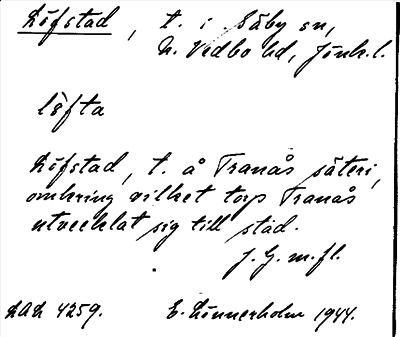 Löfstad, t. i Säby sn,
N. Vedbo hd, Jönk.l.
löfta
Löfstad, t. å Tranås säteri,
omkring vilket torp Tranås
utvecklat sig till stad.
J. G. m.fl.
LAL 4259. E. Lönnerholm 1944.